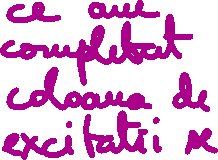 ce am
completat
coloana de
excitatii se